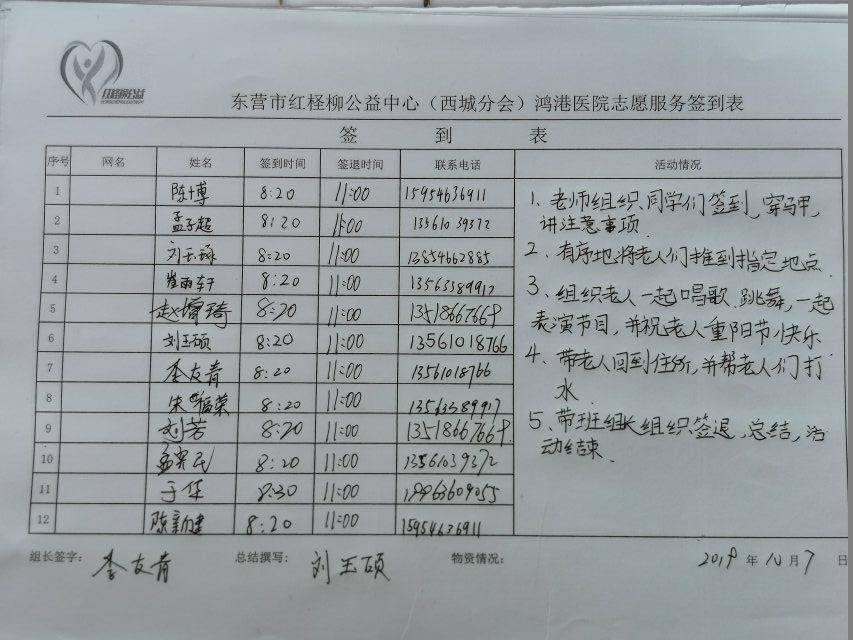 红柽柳公益
东营市红柽柳公益中心（西城分会）鸿港医院志愿服务签到表
签 到 表
序号 网名 姓名 签到时间 签退时间 联系电话 活动情况
1 陈博 8:20 11:00 15954636911
2 孟子超 8:20 11:00 13561039372
3 刘 8:20 11:00 13854662885
4 崔雨轩 8:20 11:00 13563389917
5 赵 琦 8:20 11:00 13518667669
6 刘玉硕 8:20 11:00 13561018766
7 李友青 8:20 11:00 13561018766
8 宋福荣 8:20 11:00 13563389917
9 刘芳 8:20 11:00 13518667669
10 孟宪民 8:20 11:00 13561039372
11 于华 8:30 11:00
12 陈新建 8:20 11:00 15954636911
1、老师组织同学们签到，穿马甲，
讲注意事项.
2、有序地将老人们推到指定地点.
3、组织老人一起唱歌.跳舞，一起
表演节目，并祝老人重阳节快乐
4、带老人回到住所，并帮老人们打
水.
5、带班组长组织签退，总结，活
动结束.
组长签字： 李友青 总结撰写： 刘玉硕 物资情况： 2019 年 10 月 7 日